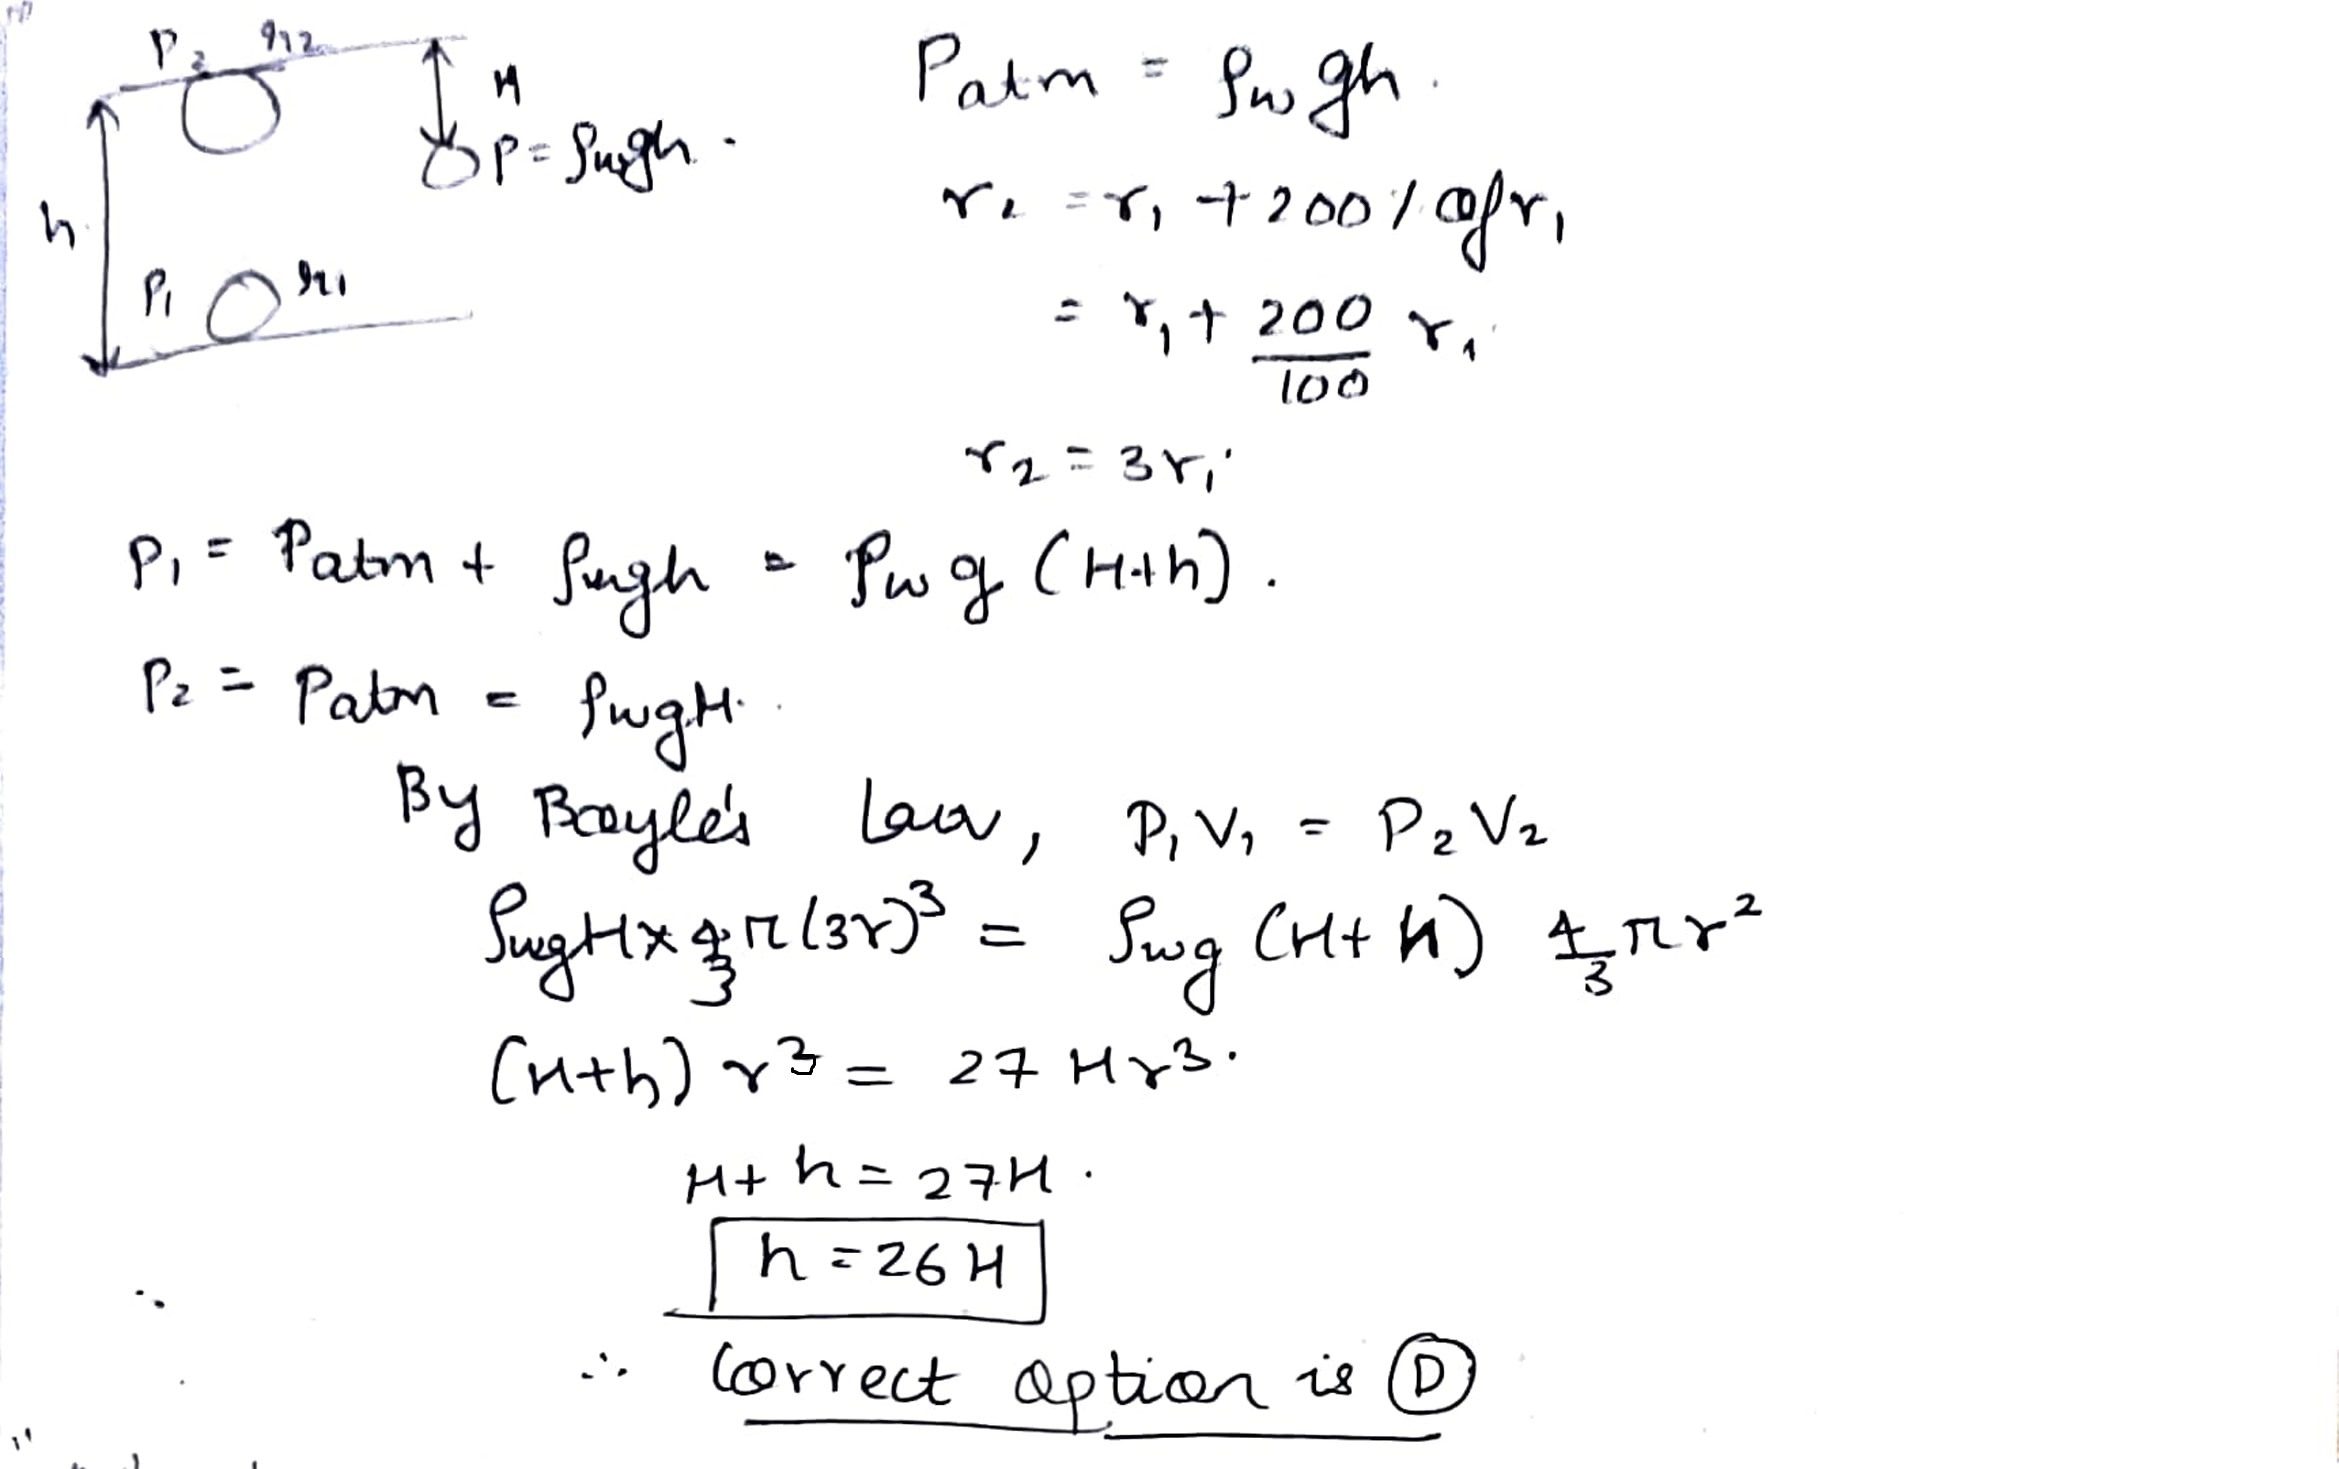 P₂ r₂
H
P = ρwgh.
h
P₁ r₁
Patm = ρw gh.
r₂ = r₁ + 200% of r₁
= r₁ + 200/100 r₁
r₂ = 3r₁
P₁ = Patm + ρwgh = ρw g (H+h).
P₂ = Patm = ρwgH.
By Boyle's Law, P₁V₁ = P₂V₂
ρwgH × 4/3 π(3r)³ = ρwg (H+h) 4/3 πr²
(H+h) r³ = 27 Hr³.
H + h = 27H.
h = 26H
∴ Correct option is D